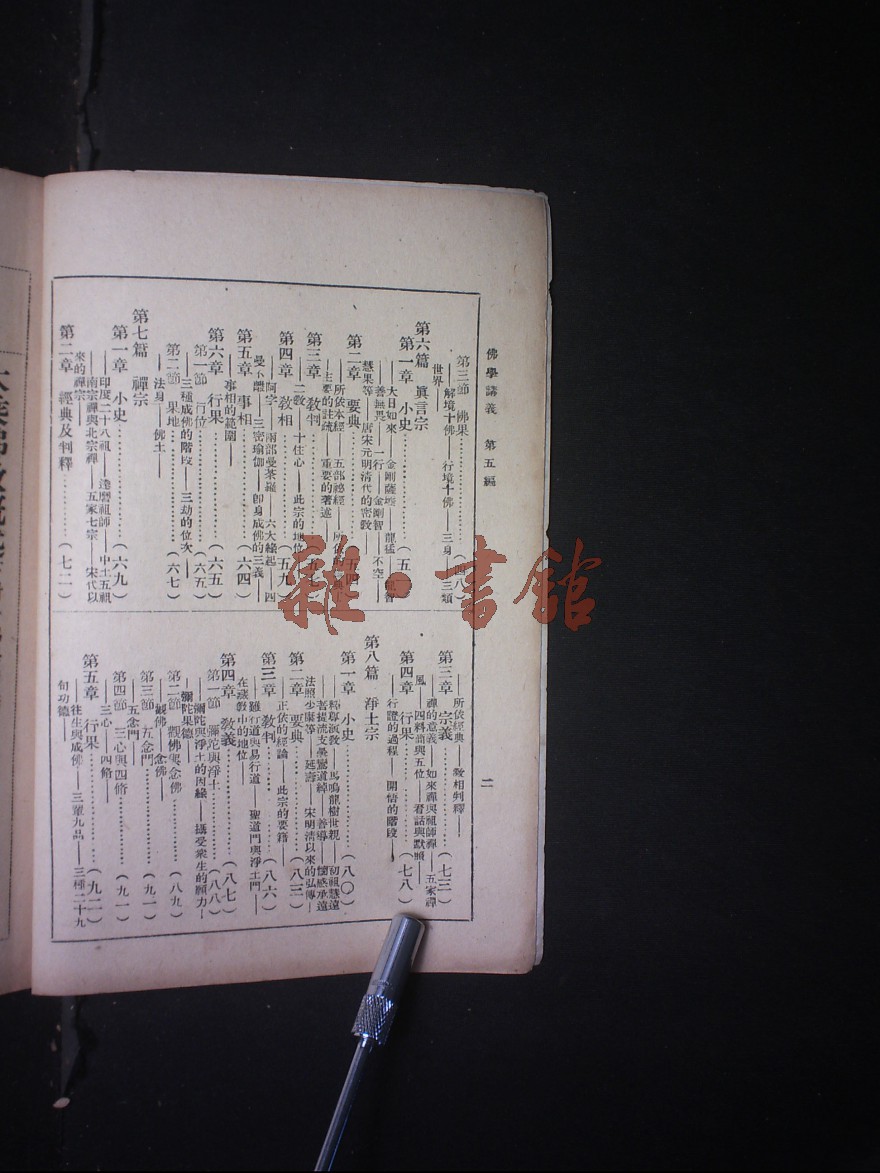 佛學講義 第五編
二
第三節 佛果…………(八)
解境十佛——行境十佛——三身——三類
世界——
第六篇 眞言宗
第一章 小史…………(五
——大日如來——金剛薩埵——龍猛——智
——善無畏——一行——金剛智——不空——
慧果等——唐宋元明清代的密教——
第二章 要典…………(五四
所依本經——五部祕經——所依
——主要的註疏——重要的著述
第三章 教判…………(五
二教——十住心——此宗的地位
第四章 教相…………(五九
——阿字——兩部曼荼羅——六大緣起——四
曼不離——三密瑜伽——卽身成佛的三義——
第五章 事相…………(六四)
事相的範圍——
第六章 行果…………(六五)
第一節 行位…………(六五)
——三種成佛的階段——三劫的位次——
第二節 果地…………(六七)
——法身——佛土——
第七篇 禪宗
第一章 小史…………(六九)
——印度二十八祖——達磨祖師——中土五祖
——南宗禪與北宗禪——五家七宗——宋代以
來的禪宗——
第二章 經典及判釋…………(七二)
所依經典——敎相判釋——
第三章 宗義…………(七三)
——禪的意義——如來禪與祖師禪——五家禪
風——四料簡與五位——看話與默照
第四章 行果…………(七八)
——行證的過程——開悟的階段——
第八篇 淨土宗
第一章 小史…………(八〇)
——釋尊演敎——馬鳴龍樹世親——初祖慧遠
——菩提流支曇鸞道綽——善導——懷感承遠
法照少康等——延壽——宋明清以來的弘傳——
第二章 要典…………(八三)
正依的經論——此宗的要籍——
第三章 敎判…………(八六)
——難行道與易行道——聖道門與淨土門——
在藏敎中的地位——
第四章 敎義…………(八七)
第一節 彌陀與淨土…………(八八)
——彌陀與淨土的因緣——攝受衆生的願力——
——彌陀果德——
第二節 觀佛與念佛…………(八九)
——觀佛——念佛——
第三節 五念門…………(九一)
——五念門——
第四節 三心與四脩…………(九一)
——三心——四脩——
第五章 行果…………(九二)
——往生與成佛——三輩九品——三種二十九
句功德——
雜·書館